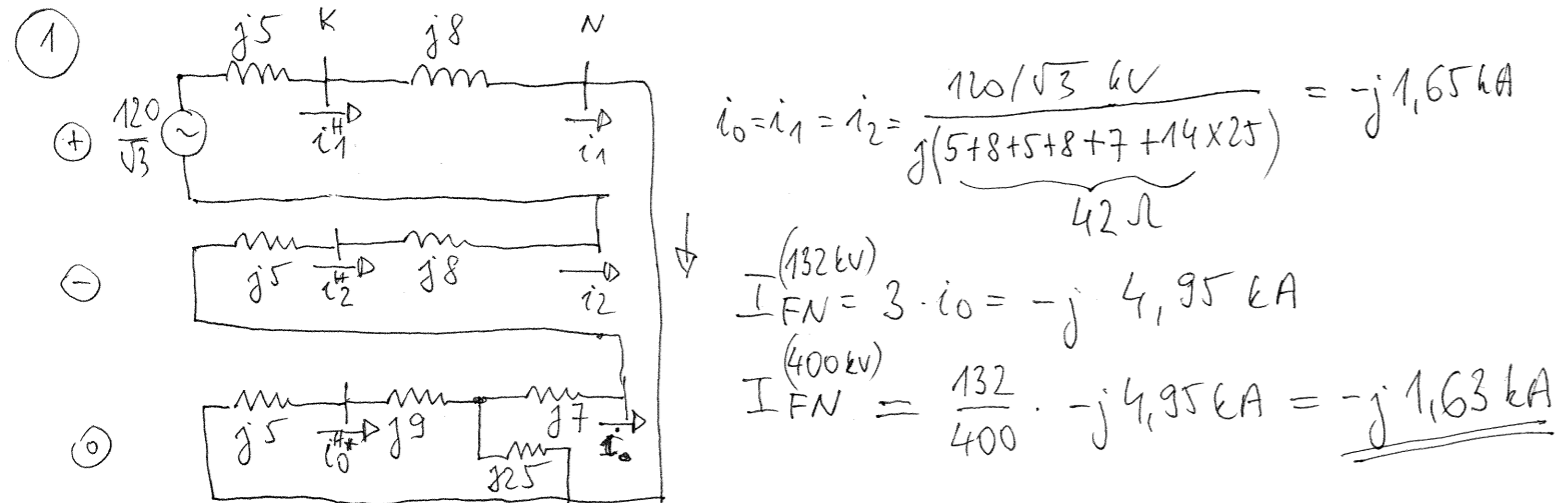 1
j5 K j8 N
+ 120/√3 ~ i₁ᴴ i₁
- j5 i₂ᴴ j8 i₂
0 j5 i₀ᴴ j9 j25 j7 i₀
i₀=i₁=i₂= 120/√3 kV / j(5+8+5+8+7+14×25) = -j1,65kA
42Ω
I_FN^(132kV) = 3·i₀ = -j 4,95 kA
I_FN^(400kV) = 132/400 · -j4,95kA = -j1,63kA